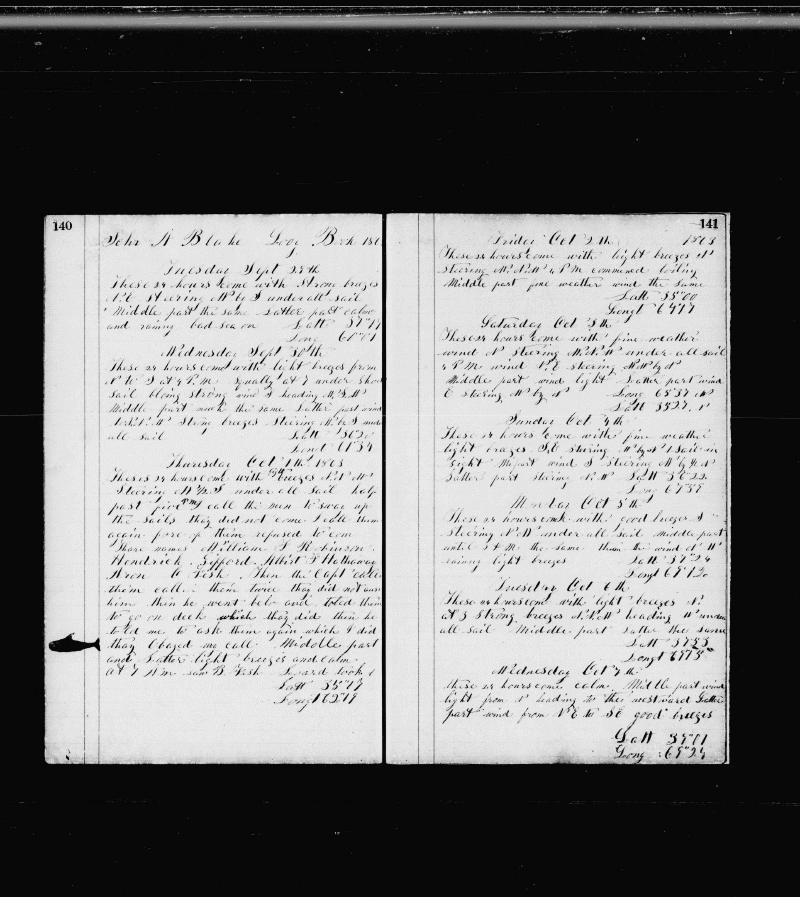 140
John A Blake Logg Book 186
Tuesday Sept 29th
These 24 hours come with Strong brezes
N.E Steering W by S under all sail
Middle part the same Latter part calm
and rainy bad sea on Latt 37"
Long 60"01
Wednesday Sept 30th
These 24 hours come with light breges from
N to S at 4 P.M. Squally at 7 under Shor
Sail blong strong wind S heading W.S.W
Middle part much the same Latter part wind
Strong breezes Steering W by S
all sail Latt 36"20
Longt 61"34
Thursday Oct 1th 1863
These 24 hours come with breezes N.N.W
Steering W 1/2 S under all sail half
past five PM I call the men to swae up
the sails they did not come I call them
again fore of them refused to com
Thare names William S Robinson
Hendrick Gifford Albert T Hathaway
Aron C Fish Then the Capt calle
them calle them twice they did not
him then he went belo and toled them
to go on deck which they did then he
told me to ask them again which I did
they Obaged my call Middole part
and Latter light breezes and calm
at 7 A.M. saw B Fish took 1
Latt 35"
Longt 62"
141
Friday Oct 2th 1863
These 24 hours come with light breezes N
Steering W.N.W 4 P.M commenced boiling
Middle part fine weather wind the same
Latt 35"00
Longt 64"
Saturday Oct 3th
These 24 hours come with fine weather
wind N steering W.N.W under all sail
4 P.M wind N.E steering
Middle part wind light Latter part wind
E steering W by N Long 65"37 W
Latt 35"27 N
Sunday Oct 4th
These 24 hours come with fine weather
light brezes S.E stering W by N 1 Sail in
Sight M part wind S steering
Latter part stering N.W Latt 36"22
Long
Monday Oct 5th
These 24 hours com with good breezes S
Steering N.W under all sail middle part
until 5 A.M the same then the wind N W
rainny light breges Latt 37"24
Longt 69"12
Tuesday Oct 6th
These 24 hours come with light breezes N.
at 3 Strong brezes heading W under
all sail Middle part Latter the same
Latt 37"
Longt
Wednesday Oct 7th
these 24 hours come calme Middle part wind
light from N heading to the westward Latter
part wind from N.E to SE good breezes
Latt 39"01
Long 69"24